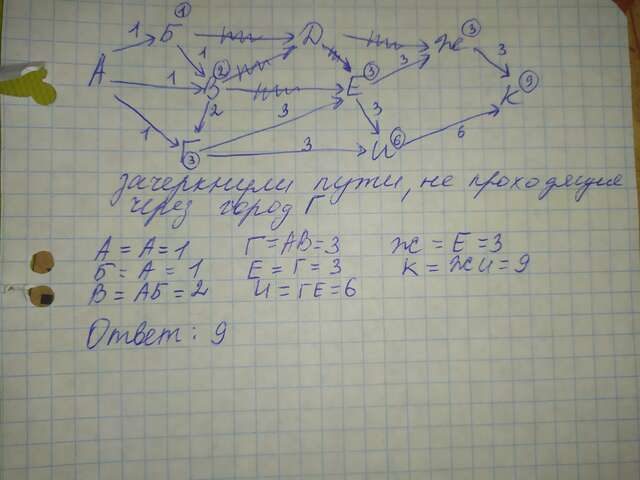 1
1 Б Д Ж 3
А 1 2 Е 3 3 3
1 В 3 К 9
1 2 3 3 6
Г 3 3 И 6
зачеркнули пути, не проходящие
через город Г
А = А = 1 Г = АВ = 3 Ж = Е = 3
Б = А = 1 Е = Г = 3 К = ЖИ = 9
В = АБ = 2 И = ГЕ = 6
Ответ: 9